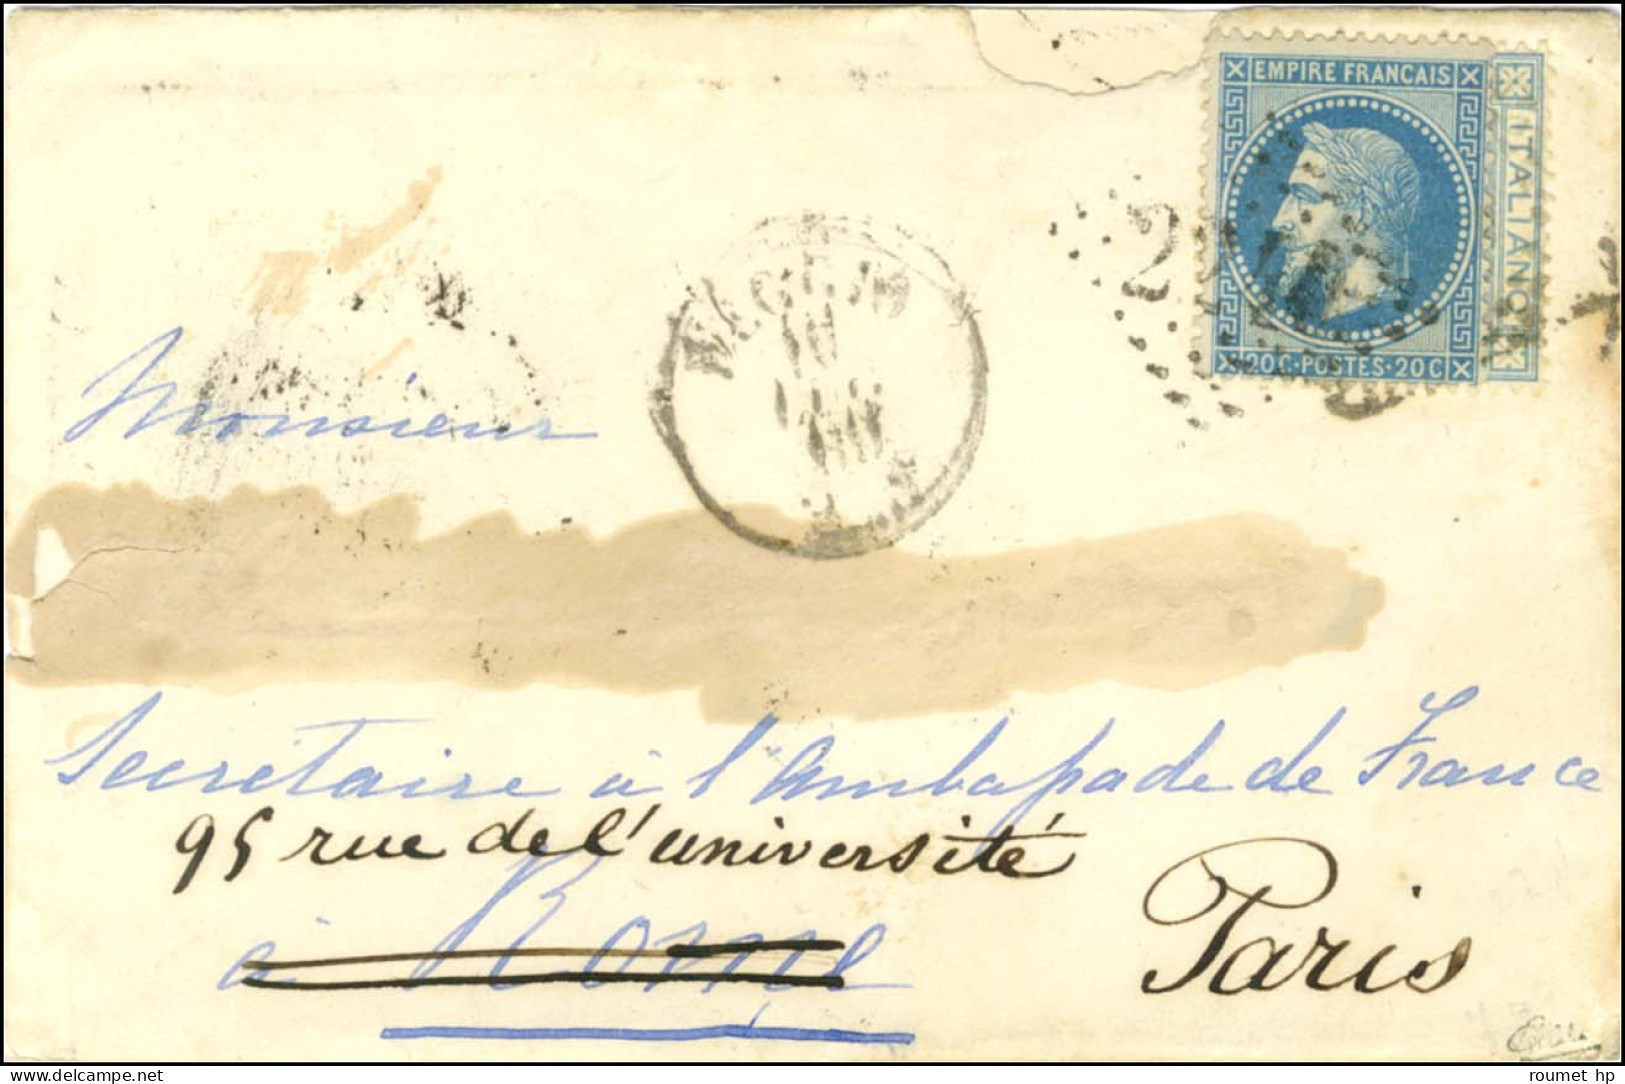 EMPIRE FRANCAIS
ITALIANO
20C·POSTES·20C
Monsieur
Secrétaire à l'Ambassade de France
95 rue de l'université
à Rome
Paris
roumet hp